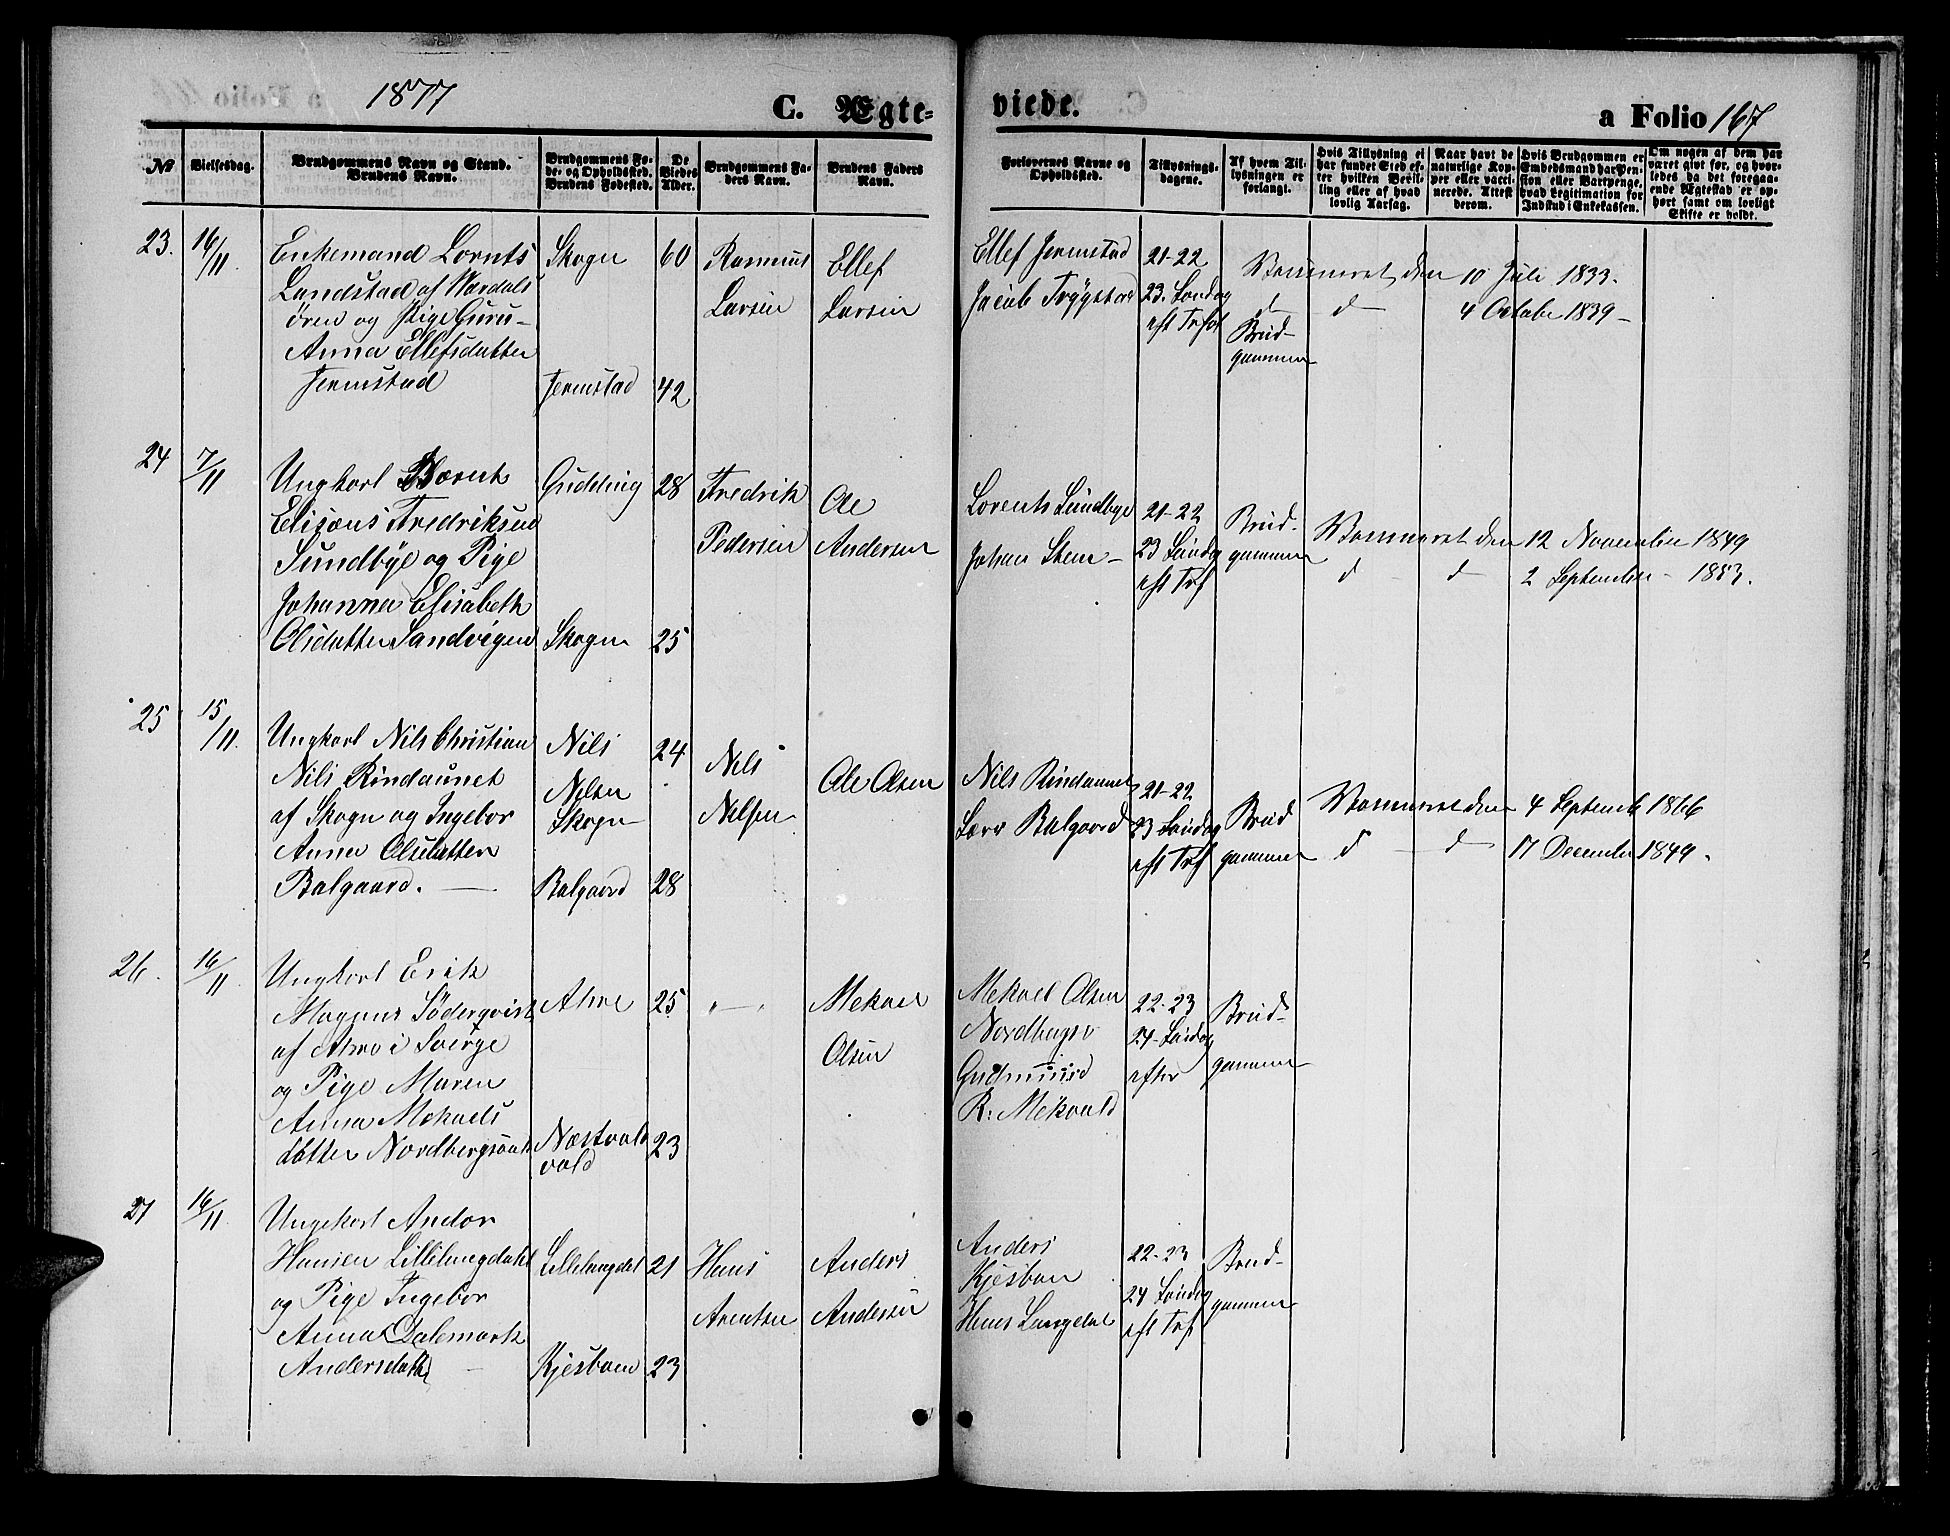 1877
C. Ægte-
viede.
a Folio 167
No
Vielsesdag.
Brudgommens Navn og Stand.
Brudens Navn.
Brudgommens Fø-
de- og Opholdsted.
Brudens Fødested.
De
Viedes
Alder.
Brudgommens Fa-
ders Navn.
Brudens Faders
Navn.
Forlovernes Navne og
Opholdsted.
Tillysnings-
dagene.
Af hvem Til-
lysningen er
forlangt.
Hvis Tillysning ei
har fundet Sted ef-
ter hvilken Bevil-
ling eller af hvad
lovlig Aarsag.
Naar havt de
naturlige Kop-
per eller vacci-
nerede. Attest
derom.
Hvis Brudgommen er
Embedsmand har Pen-
sion eller Vartpenge,
hvad Legitimation for
Indskud i Enkekassen.
Om nogen af dem har
været givt før, og hvor-
ledes da det foregaa-
ende Ægteskab er op-
hørt samt om lovligt
Skifte er holdt.
23. 16/11
Enkemand Lornts
Landstad af Værdals
ören og Pige Guru-
Anna Ellefsdatter
Jermstad
Skogn
Jermstad
60
42
Rasmus
Larsen
Ellef
Larsen
Ellef Jermstad
Jacob Trygstad
21-22
23. Søndag
eft Tref
Brud-
gommen
Vaccineret den 10 Juli 1833.
d - d - 4 Octobe 1839-
24 7/11
Ungkarl Bærnt
Elisæus Fredriksen
Sundbye og Pige
Johanna Elisabeth
Olsdatter Sandvigen
Gudding
Skogn
28
25
Fredrik
Pedersen
Ole
Andersen
Lorents Sundbye
Johan Stene-
21-22
23 Søndag
eft Tref
Brud-
gommen
Vaccineret den 12 November 1849
d - d - 2 September - 1853.
25 15/11.
Ungkarl Nils Christian
Nils Rindaunet
af Skogn og Ingebor
Anna Olsdatter
Balgaard.
Nils
Nelsen
Skogn
Balgaard
24
28
Nils
Nilsen
Ole Olsen
Nils Rindaunet
Lars Balgaard
21-22
23 Søndag
eft Tref
Brud
gommen
Vaccineret den 4 Septemb 1866
d - d - 17 December 1849.
26. 16/11
Ungkarl Erik
Magnus Söderqvist
af Ahre i Sverge
og Pige Maren
Anna Mekaels
datter Nordbergsvald
Ahre
vald
25
23
" — "
Mekael
Olsen
Mekael Olsen
Gudmund
R: Mekvald
22-23
24-Søndag
efter
Brud-
gommen
27 16/11
Ungekarl Andor
Hansen Lillelangdahl
og Pige Ingebor
Anna Dalemark
Andersdatter
Lillelangdal
Kjesboen
21
23
Hans
Arentsen
Anders
Andersen
Anders
Kjesboen
Hans Langdal
22-23
24 Søndag
eft Tref
Brud-
gommen